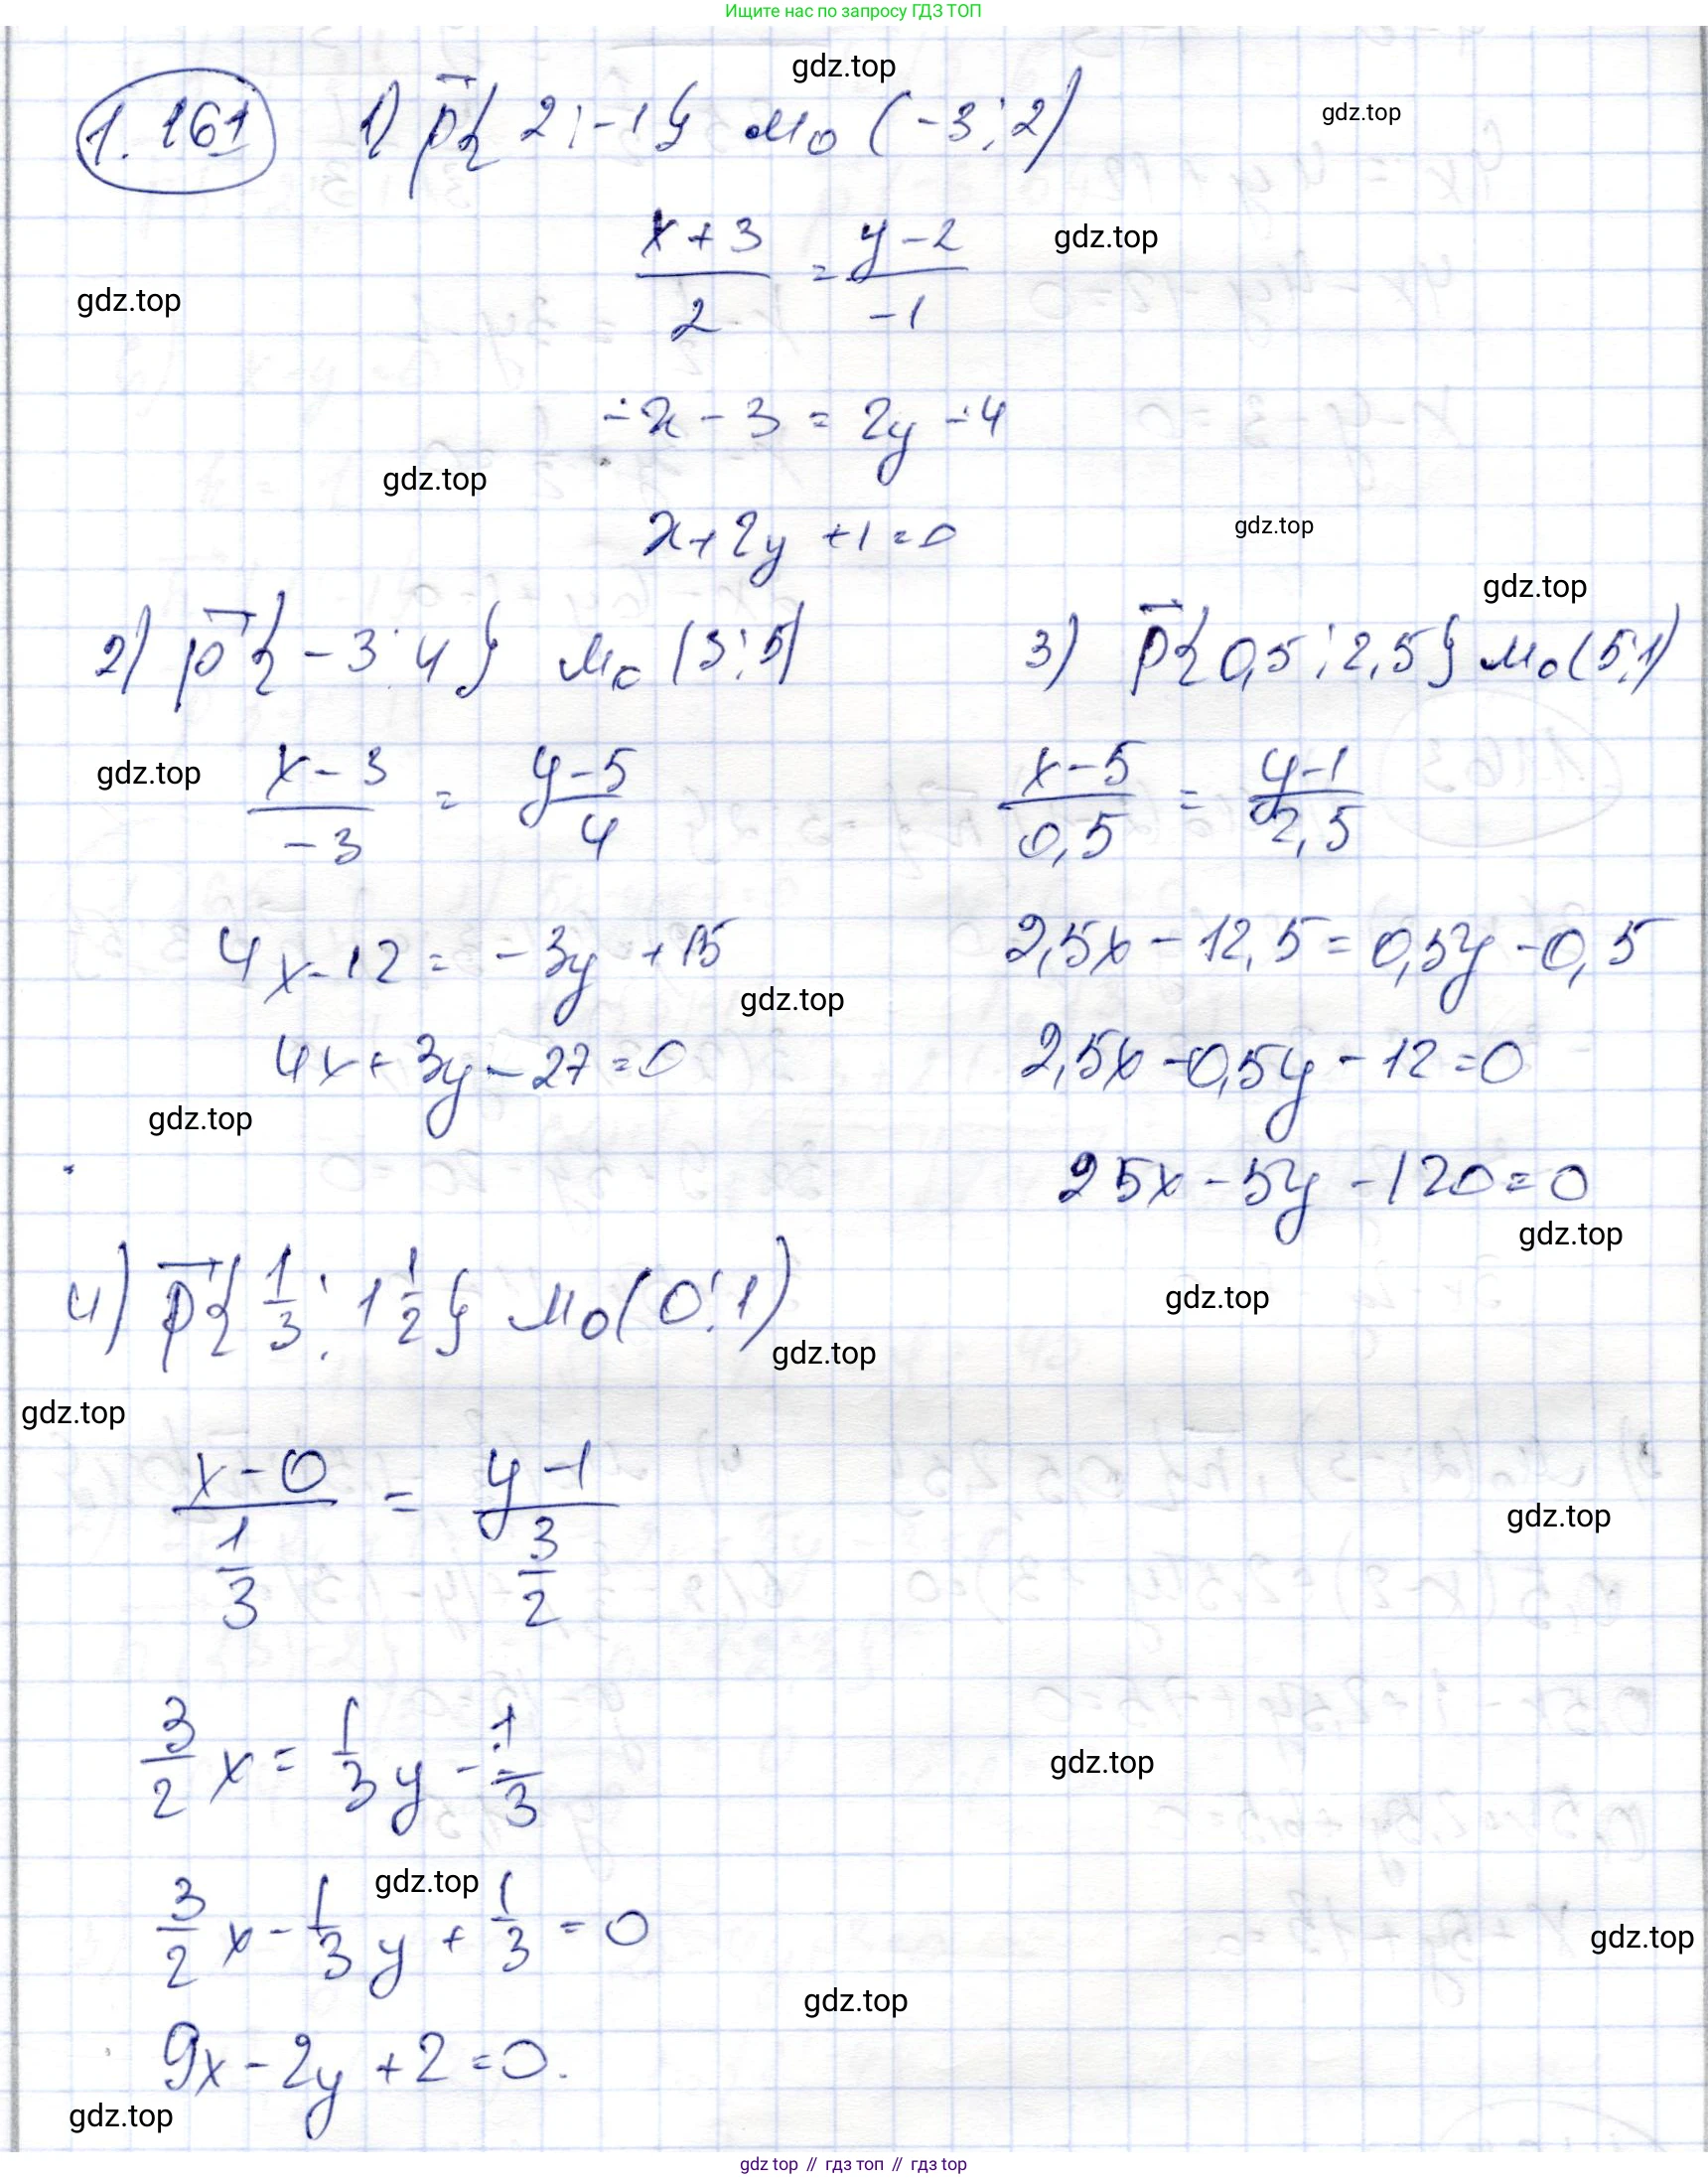 Ищите нас по запросу ГДЗ ТОП
gdz.top
1.161 1) p⃗{2; -1} M₀(-3; 2)
gdz.top
(x+3)/2 = (y-2)/(-1)
gdz.top
gdz.top
-x - 3 = 2y - 4
gdz.top
x + 2y + 1 = 0
gdz.top
gdz.top
2) p⃗{-3; 4} M₀(3; 5)
gdz.top
(x-3)/(-3) = (y-5)/4
4x - 12 = -3y + 15
gdz.top
4x + 3y - 27 = 0
gdz.top
3) p⃗{0,5; 2,5} M₀(5; 1)
(x-5)/(0,5) = (y-1)/(2,5)
2,5x - 12,5 = 0,5y - 0,5
2,5x - 0,5y - 12 = 0
25x - 5y - 120 = 0
gdz.top
gdz.top
4) p⃗{1/3; 1 1/2} M₀(0; 1)
gdz.top
gdz.top
(x-0)/(1/3) = (y-1)/(3/2)
gdz.top
3/2 x = 1/3 y - 1/3
gdz.top
gdz.top
3/2 x - 1/3 y + 1/3 = 0
gdz.top
gdz.top
9x - 2y + 2 = 0.
gdz.top
gdz top // гдз топ // гдз top